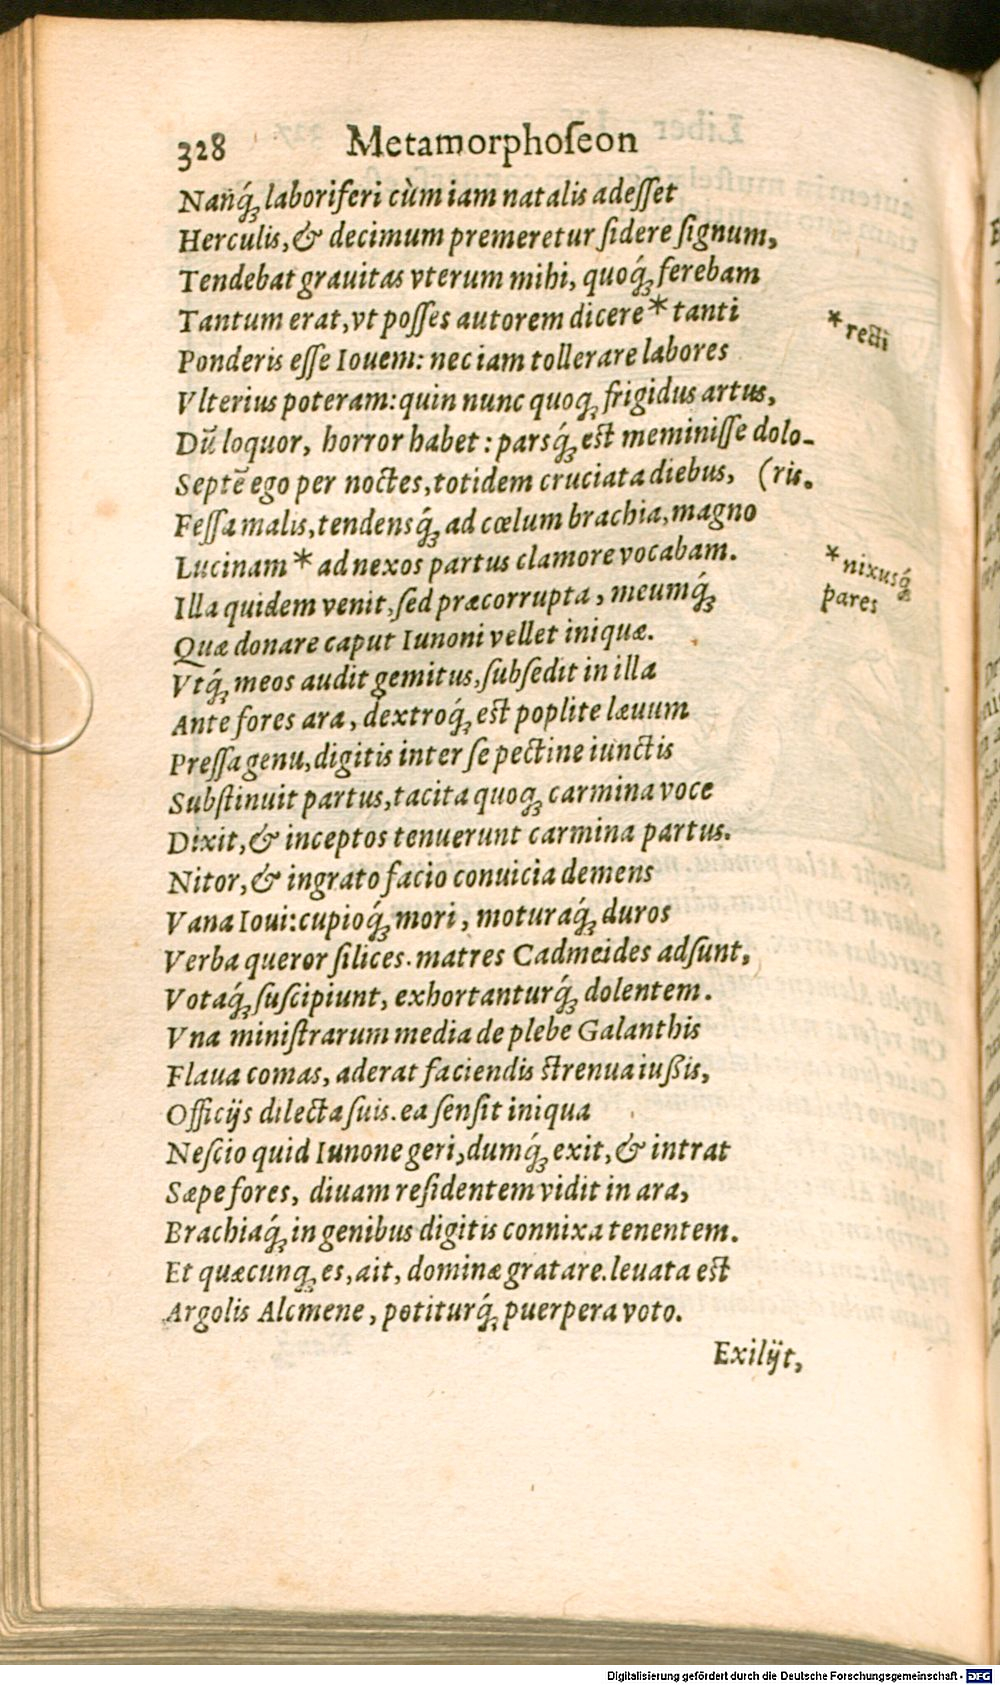 328 Metamorphoſeon
Nan̄q́ꝫ laboriferi cùm iam natalis adeſſet
Herculis, & decimum premeretur ſidere ſignum,
Tendebat grauitas vterum mihi, quoq́ꝫ ferebam
Tantum erat, vt poſſes autorem dicere * tanti
* recti
Ponderis eſſe Iouem: nec iam tollerare labores
Vlterius poteram: quin nunc quoqꝫ frigidus artus,
Dū loquor, horror habet: parsq́ꝫ eſt meminiſſe dolo-
Septē ego per noctes, totidem cruciata diebus, (ris.
Feſſa malis, tendensq́ꝫ ad cœlum brachia, magno
Lucinam * ad nexos partus clamore vocabam.
* nixusq́ꝫ
pares
Illa quidem venit, ſed præcorrupta, meumq́ꝫ
Quæ donare caput Iunoni vellet iniquæ.
Vtq́ꝫ meos audit gemitus, ſubſedit in illa
Ante fores ara, dextroq́ꝫ eſt poplite læuum
Preſſa genu, digitis inter ſe pectine iunctis
Subſtinuit partus, tacita quoqꝫ carmina voce
Dixit, & inceptos tenuerunt carmina partus.
Nitor, & ingrato facio conuicia demens
Vana Ioui: cupioq́ꝫ mori, moturaq́ꝫ duros
Verba queror ſilices. matres Cadmeides adſunt,
Votaq́ꝫ ſuſcipiunt, exhortanturq́ꝫ dolentem.
Vna miniſtrarum media de plebe Galanthis
Flaua comas, aderat faciendis ſtrenua iußis,
Officijs dilecta ſuis. ea ſenſit iniqua
Neſcio quid Iunone geri, dumq́ꝫ exit, & intrat
Sæpe fores, diuam reſidentem vidit in ara,
Brachiaq́ꝫ in genibus digitis connixa tenentem.
Et quæcunqꝫ es, ait, dominæ gratare. leuata eſt
Argolis Alcmene, potiturq́ꝫ puerpera voto.
Exilijt,
Digitalisierung gefördert durch die Deutsche Forschungsgemeinschaft - DFG